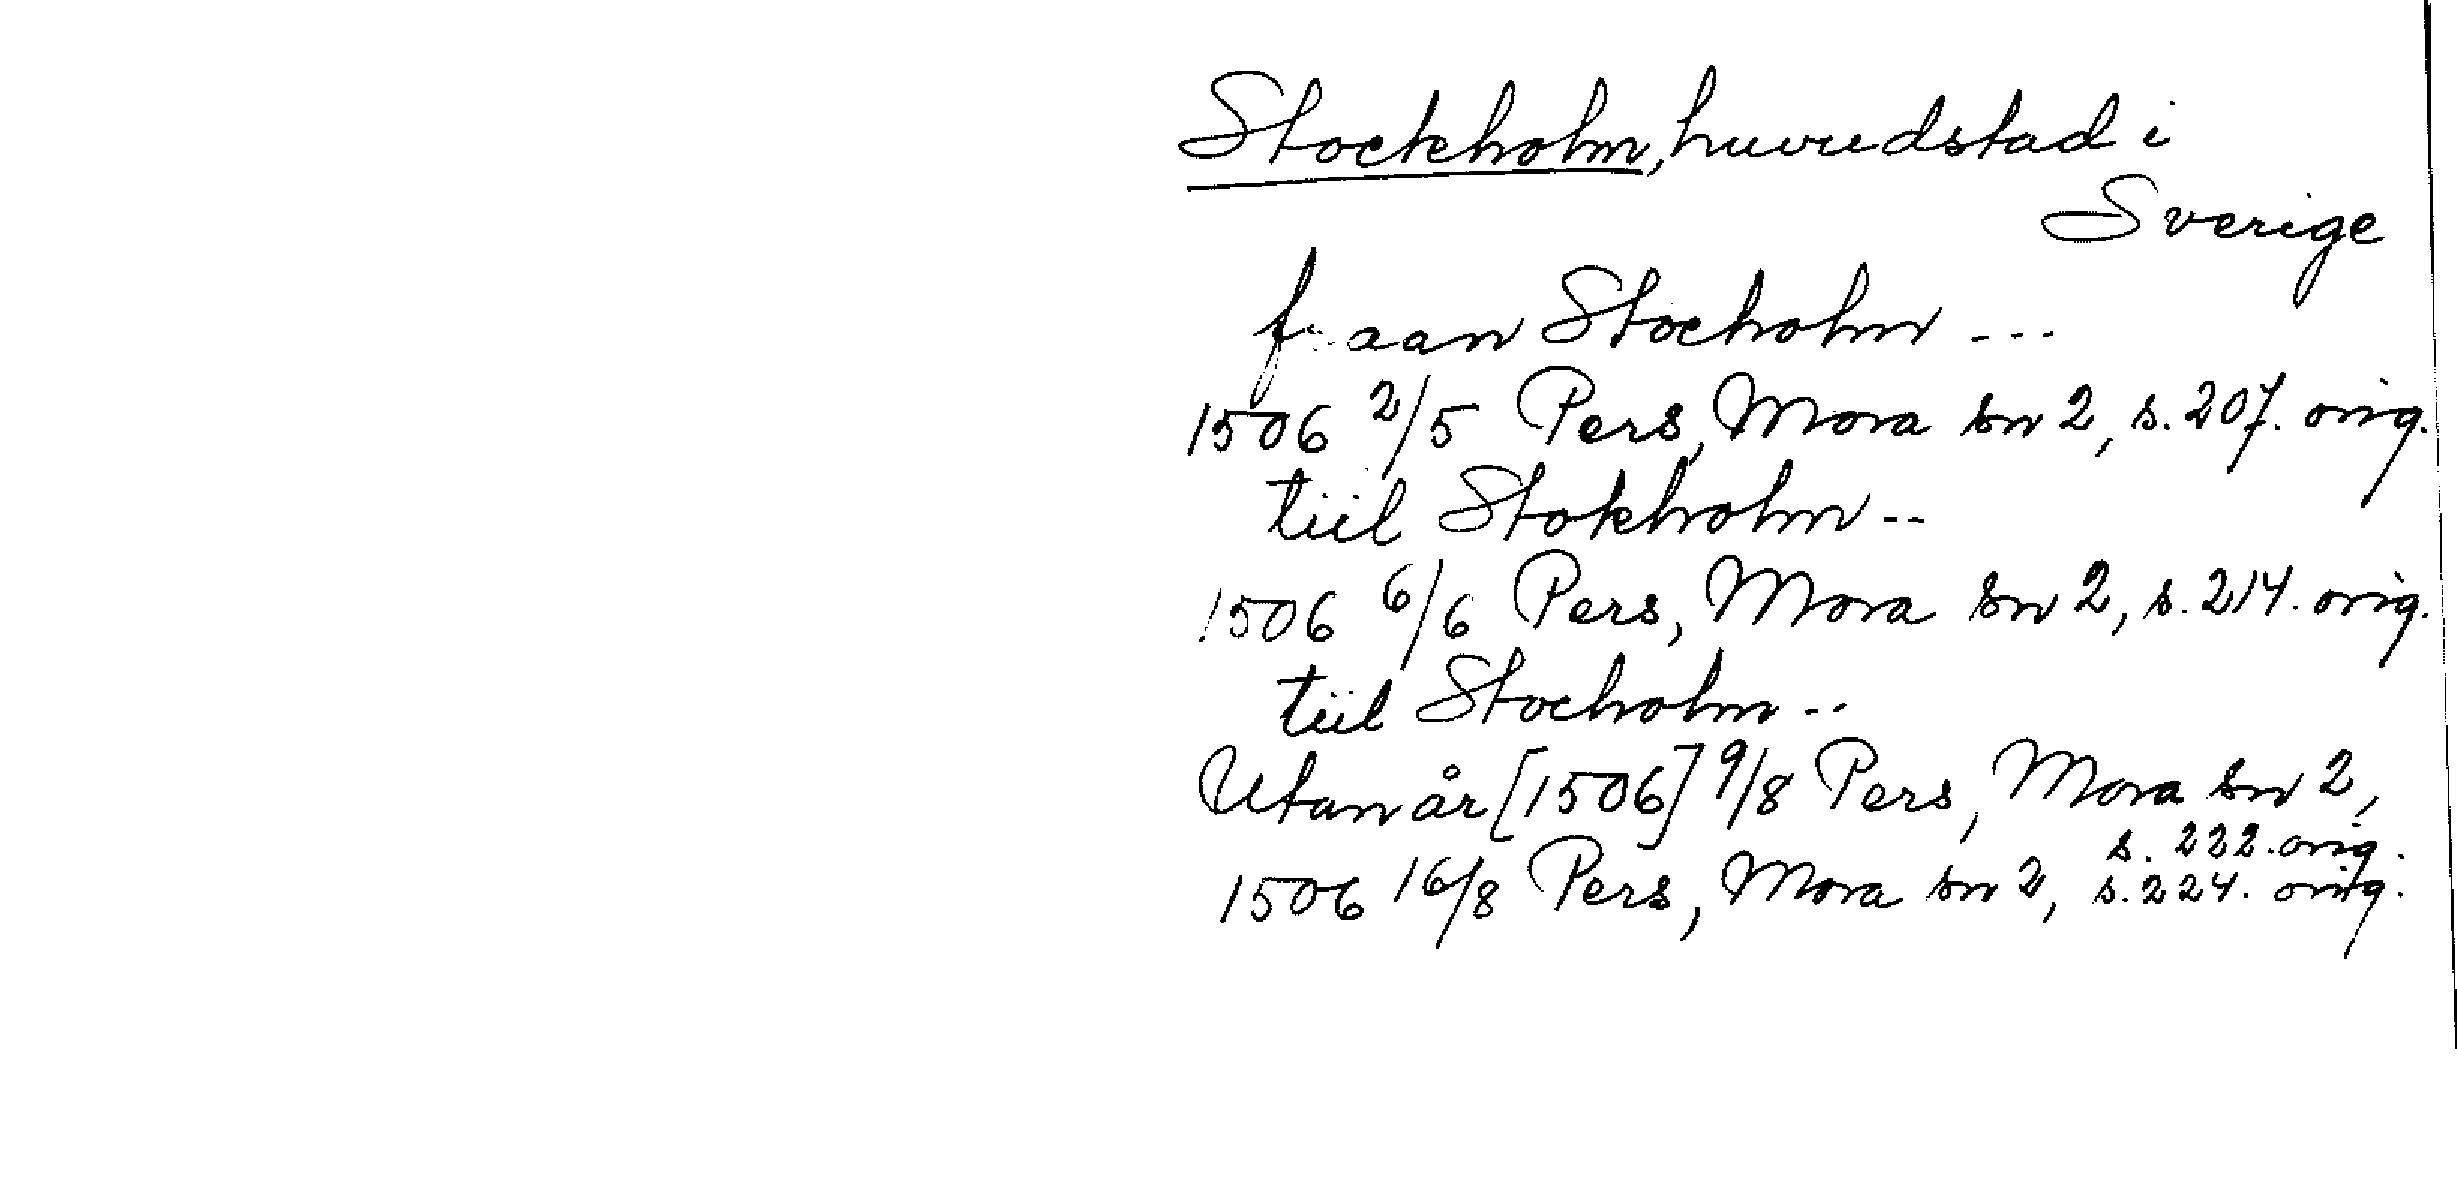 Stockholm, huvudstad i
Sverige
fraan Stocholm ...
1506 2/5 Pers, Mora sn 2, s. 207. orig.
tiil Stokholm ..
1506 6/6 Pers, Mora sn 2, s. 214. orig.
tiil Stocholm ..
Utan år [1506] 9/8 Pers, Mora sn 2,
s. 222. orig.
1506 16/8 Pers, Mora sn 2, s. 224. orig.